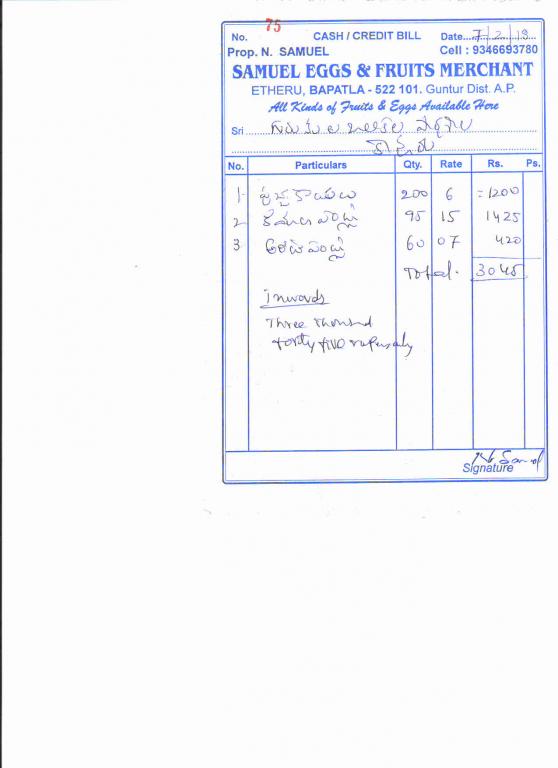 No. 75 CASH / CREDIT BILL Date...7/2/19...
Prop. N. SAMUEL Cell : 9346693780
SAMUEL EGGS & FRUITS MERCHANT
ETHERU, BAPATLA - 522 101. Guntur Dist. A.P.
All Kinds of Fruits & Eggs Available Here
Sri గురుకుల
No. Particulars Qty. Rate Rs. Ps.
1 పుచ్చకాయలు 200 6 =1200
2 కమలా పండ్లు 95 15 1425
3 అరటి పండ్లు 60 07 420
Total. 3045
Inwords
Three thousand
forty five rupees only
Signature